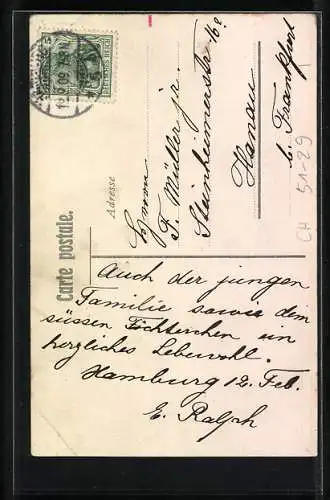 Carte postale.
Adresse
Herrn
F. Müller jr.
Steinheimerstr. 16 2
Hanau
b. Frankfurt
CH 51-29
Auch der jungen
Familie sowie dem
süssen Töchterchen ein
herzliches Lebewohl.
Hamburg 12. Feb.
E. Ralph
DEUTSCHES REICH
5